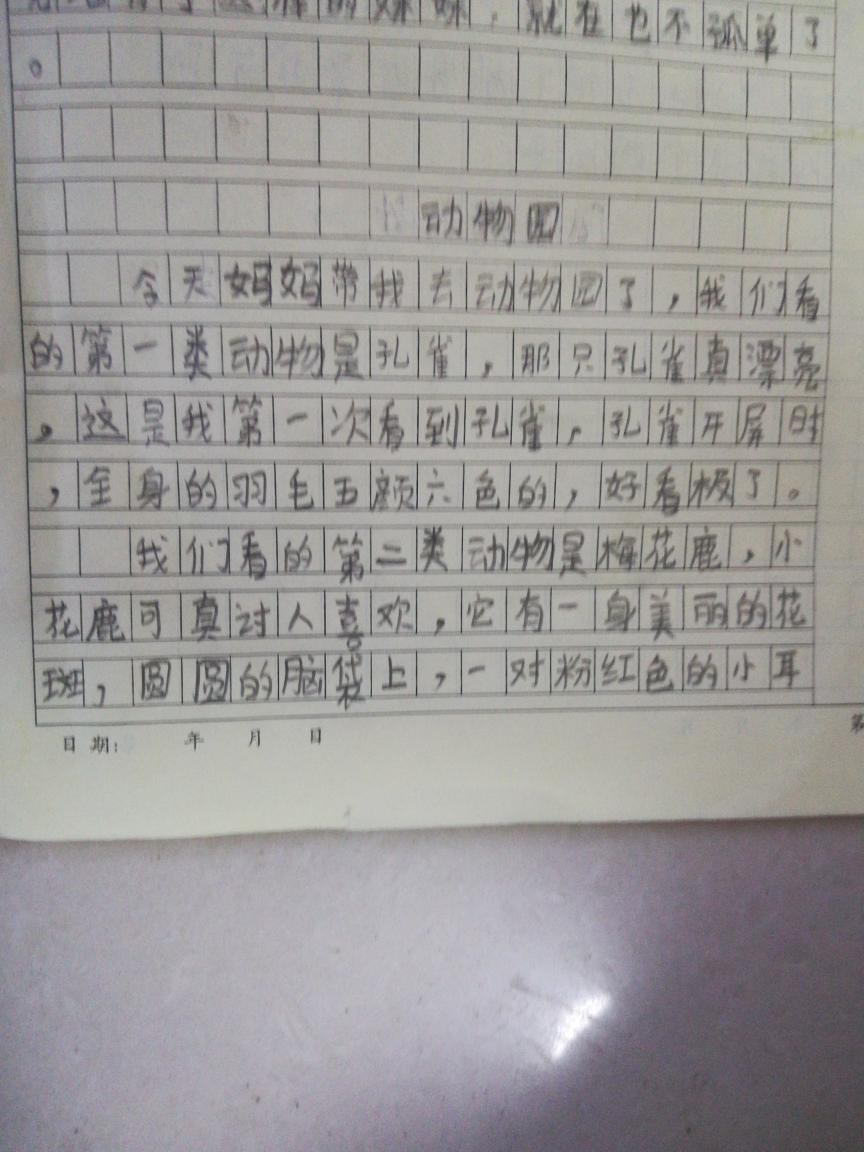 的妹妹，就在也不孤单了
。
动物园
今天妈妈带我去动物园了，我们看
的第一类动物是孔雀，那只孔雀真漂亮
，这是我第一次看到孔雀，孔雀开屏时
，全身的羽毛五颜六色的，好看极了。
我们看的第二类动物是梅花鹿，小
花鹿可真讨人喜欢，它有一身美丽的花
斑，圆圆的脑袋上，一对粉红色的小耳
日期： 年 月 日
第